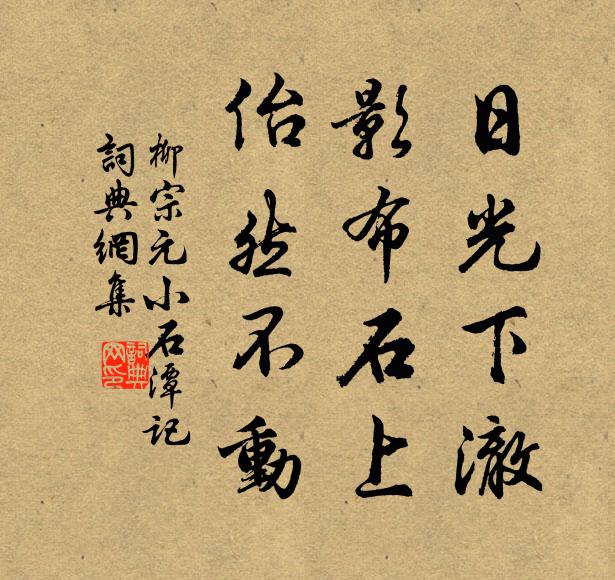 日光下澈
影布石上
佁然不動
柳宗元小石潭記
詞典網集
詞典
网印